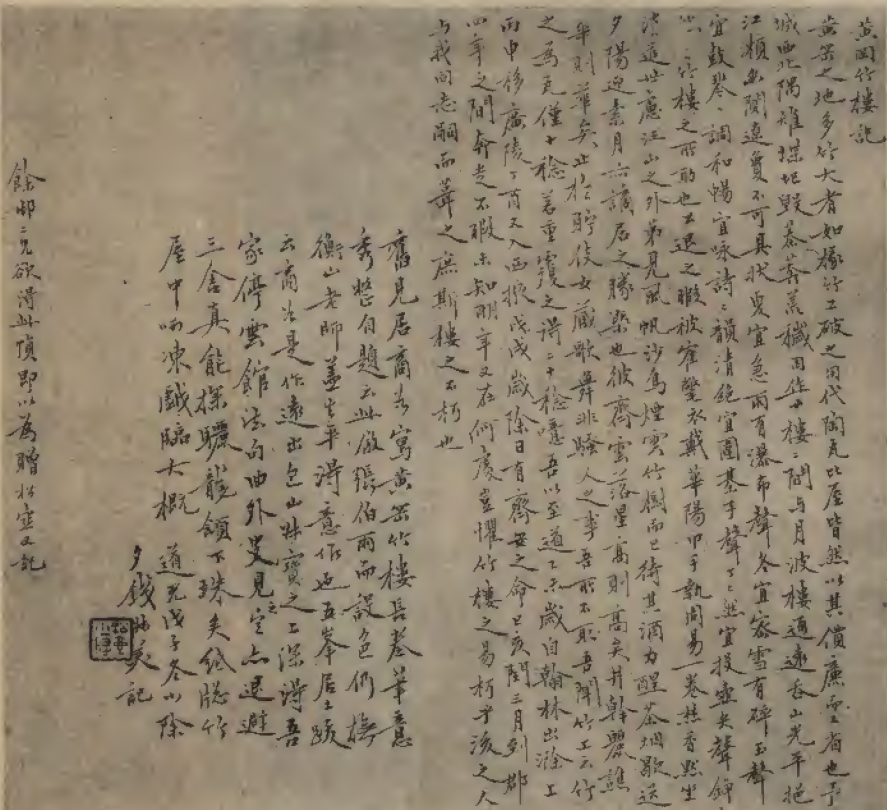 黄岡竹樓記
黄岡之地多竹大者如椽竹工破之用代陶瓦比屋皆然以其價廉工省也予
城西北隅雉堞圮毁蓁莽荒穢因作小樓二間与月波樓通遠吞山光平挹
江瀬幽闃遼夐不可具狀夏宜急雨有瀑布聲冬宜密雪有碎玉聲
宜鼓琴〻調和暢宜咏詩〻韻清絶宜圍棊子聲丁〻然宜投壺矢聲錚
竹樓之所助也公退之暇被鶴氅衣戴華陽巾手執周易一卷焚香默坐
消遣世慮江山之外第見風帆沙鳥煙雲竹樹而已待其酒力醒茶烟歇送
夕陽迎素月亦謫居之勝槩也彼齊雲落星高則高矣井幹麗譙
華則華矣止於貯伎女藏歌舞非騷人之事吾所不取吾聞竹工云竹
之為瓦僅十稔若重覆之得二十稔噫吾以至道乙未歲自翰林出滁上
丙申移廣陵丁酉又入西掖戊戌歲除日有齊安之命己亥閏三月到郡
四年之間奔走不暇未知明年又在何處豈懼竹樓之易朽乎後之人
与我同志嗣而葺之庶斯樓之不朽也
舊見居商谷寫黄岡竹樓長卷筆意
秀整自題云此倣張伯雨而設色仍橅
衡山老師蓋生平得意作也五峯居士跋
云商谷是作遠出包山珎寳之上深得吾
家停雲館法向曲外叟見之定亦退避
三舍真能探驪龍頷下珠矣紙牕竹
屋中呵凍戯臨大概 道光戊子冬小除
夕錢記
餘邨二兄欲得此頂即以為贈松壺又記